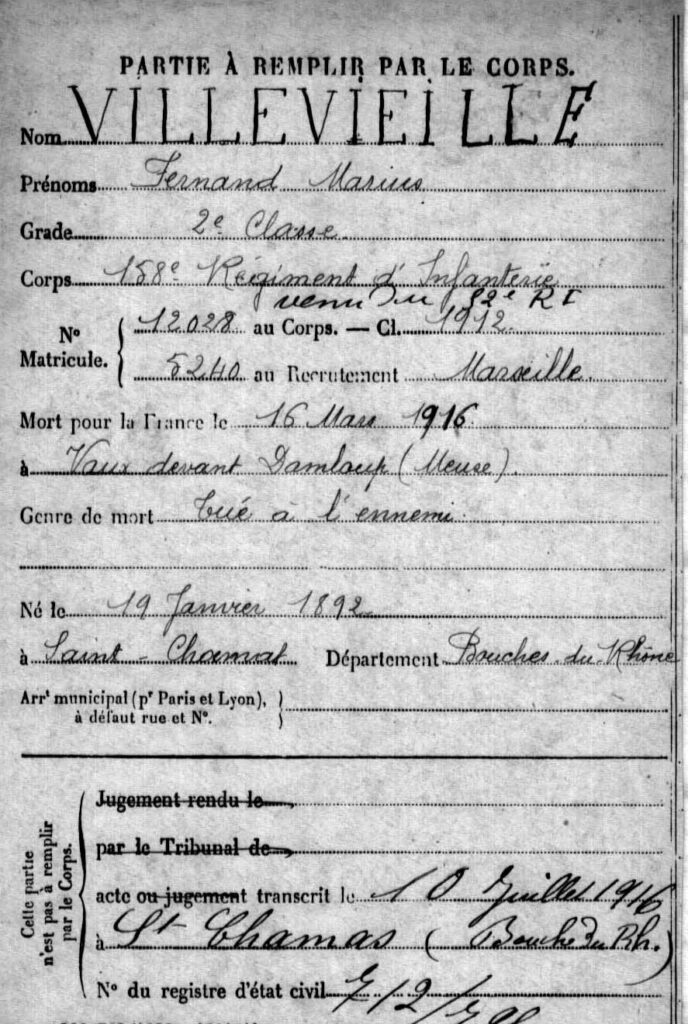 PARTIE À REMPLIR PAR LE CORPS.
Nom VILLEVIEILLE
Prénoms Fernand Marius
Grade 2e Classe
Corps 158e Régiment d'Infanterie
venu du 82e RI
No Matricule. { 12028 au Corps. — Cl. 1912
5240 au Recrutement Marseille
Mort pour la France le 16 Mars 1916
à Vaux devant Damloup (Meuse).
Genre de mort Tué à l'ennemi
Né le 19 Janvier 1892
à Saint-Chamat Département Bouches-du-Rhône
Arrt municipal (pr Paris et Lyon), }
à défaut rue et No.
Cette partie n'est pas à remplir par le Corps.
Jugement rendu le
par le Tribunal de
acte ou jugement transcrit le 10 Juillet 1916
à St Chamas (Bouche du Rh.)
No du registre d'état civil